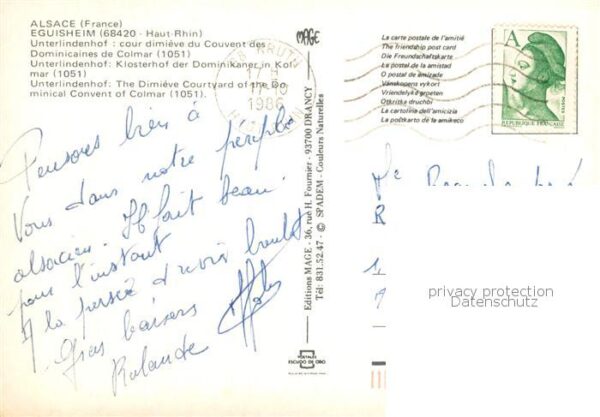 ALSACE (France)
EGUISHEIM (68420 - Haut-Rhin)
Unterlindenhof : cour dimiève du Couvent des
Dominicaines de Colmar (1051)
Unterlindenhof: Klosterhof der Dominikaner in Kol-
mar (1051)
Unterlindenhof: The Dimiéve Courtyard of the Do-
minical Convent of Colmar (1051).
MAGE
KRUTH
1986
La carte postale de l'amitié
The friendship post card
Die Freundschaftskarte
La postal de la amistad
O postal de amizade
Vänskapens vykort
Vriendelyke groeten
Otkritka druchbi
La cartolina dell'amicizia
La postkarto de la amikeco
A
REPUBLIQUE FRANÇAISE
POSTES
Pensons bien à
Vous dans notre périple
alsacien. Il fait beau
pour l'instant
A la
Gros baisers
Rolande
Editions MAGE - 36, rue H. Fournier - 93700 DRANCY
Tél: 831.52.47 - © SPADEM - Couleurs Naturelles
POSTALES
ESCUDO DE ORO
privacy protection
Datenschutz